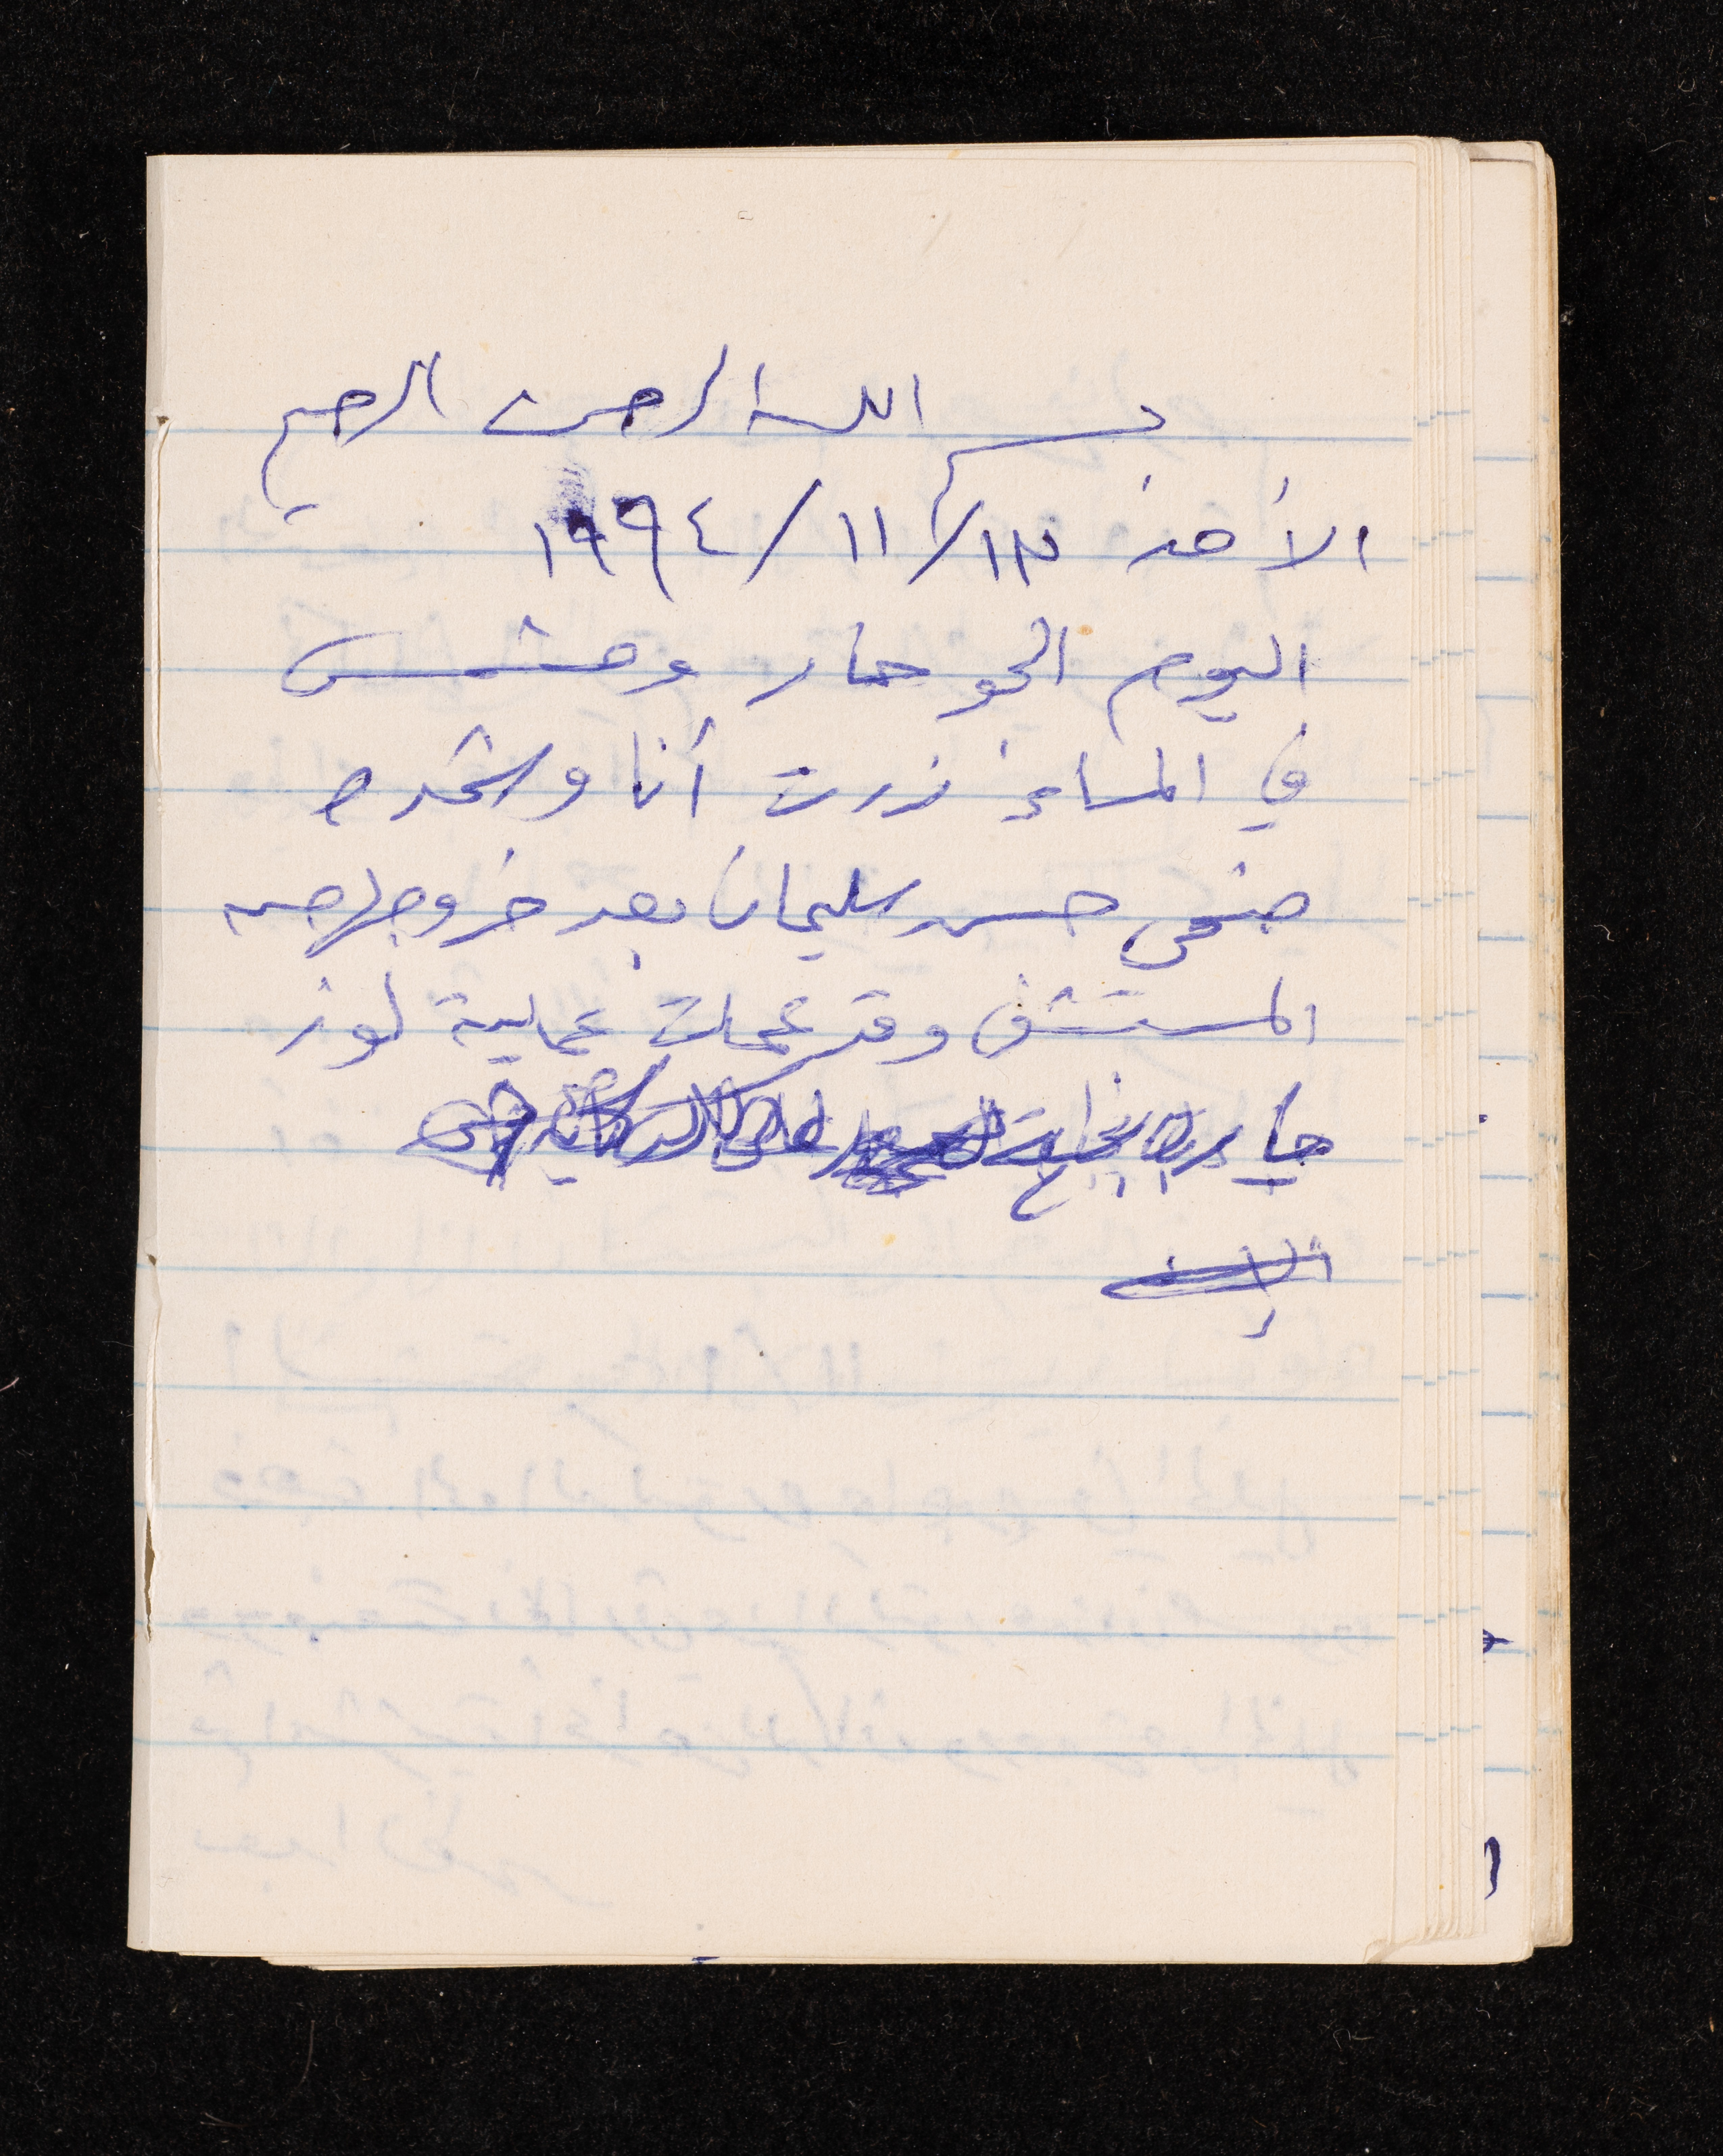 بسم الله الرحمن الرحيم
الأحد ١٣/١١/١٩٩٤
اليوم الجو حار ومشمس
في المساء زرت أنا و
ضحى حسن سليمان بعد خروجها من
المستشفى وقد عملت عملية لوز